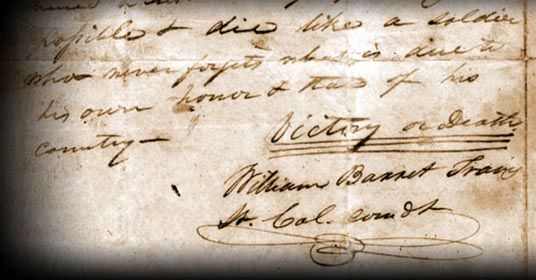 possible & die like a soldier
who never forgets what is due to
his own honor & that of his
country—
Victory or Death
William Barret Travis
Lt. Col. comdt